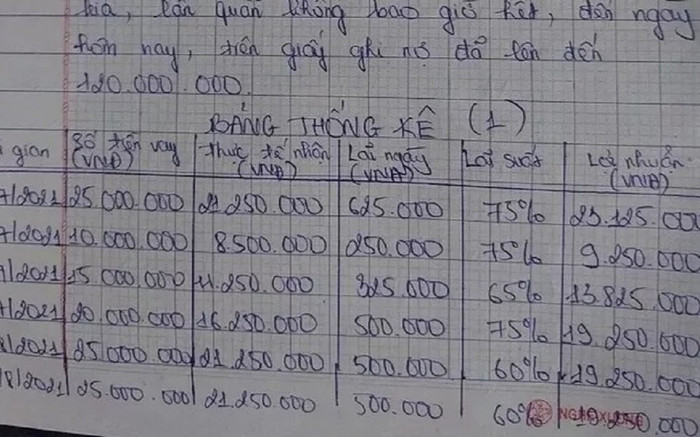 kia, lần quần không bao giờ hết, đến ngày
hôm nay, trên giấy ghi nợ đã lên đến
120.000.000.
BẢNG THỐNG KÊ (1)
gian Số tiền vay (VNĐ) Thực tế nhận (VNĐ) Lãi ngày (VNĐ) Lãi suất Lợi nhuận (VNĐ)
/2021 25.000.000 21.250.000 625.000 75% 23.125.000
/2021 10.000.000 8.500.000 250.000 75% 9.250.000
/2021 15.000.000 11.250.000 325.000 65% 13.825.000
/2021 20.000.000 16.250.000 500.000 75% 19.250.000
/2021 25.000.000 21.250.000 500.000 60% 19.250.000
/8/2021 25.000.000 21.250.000 500.000 60% 250.000